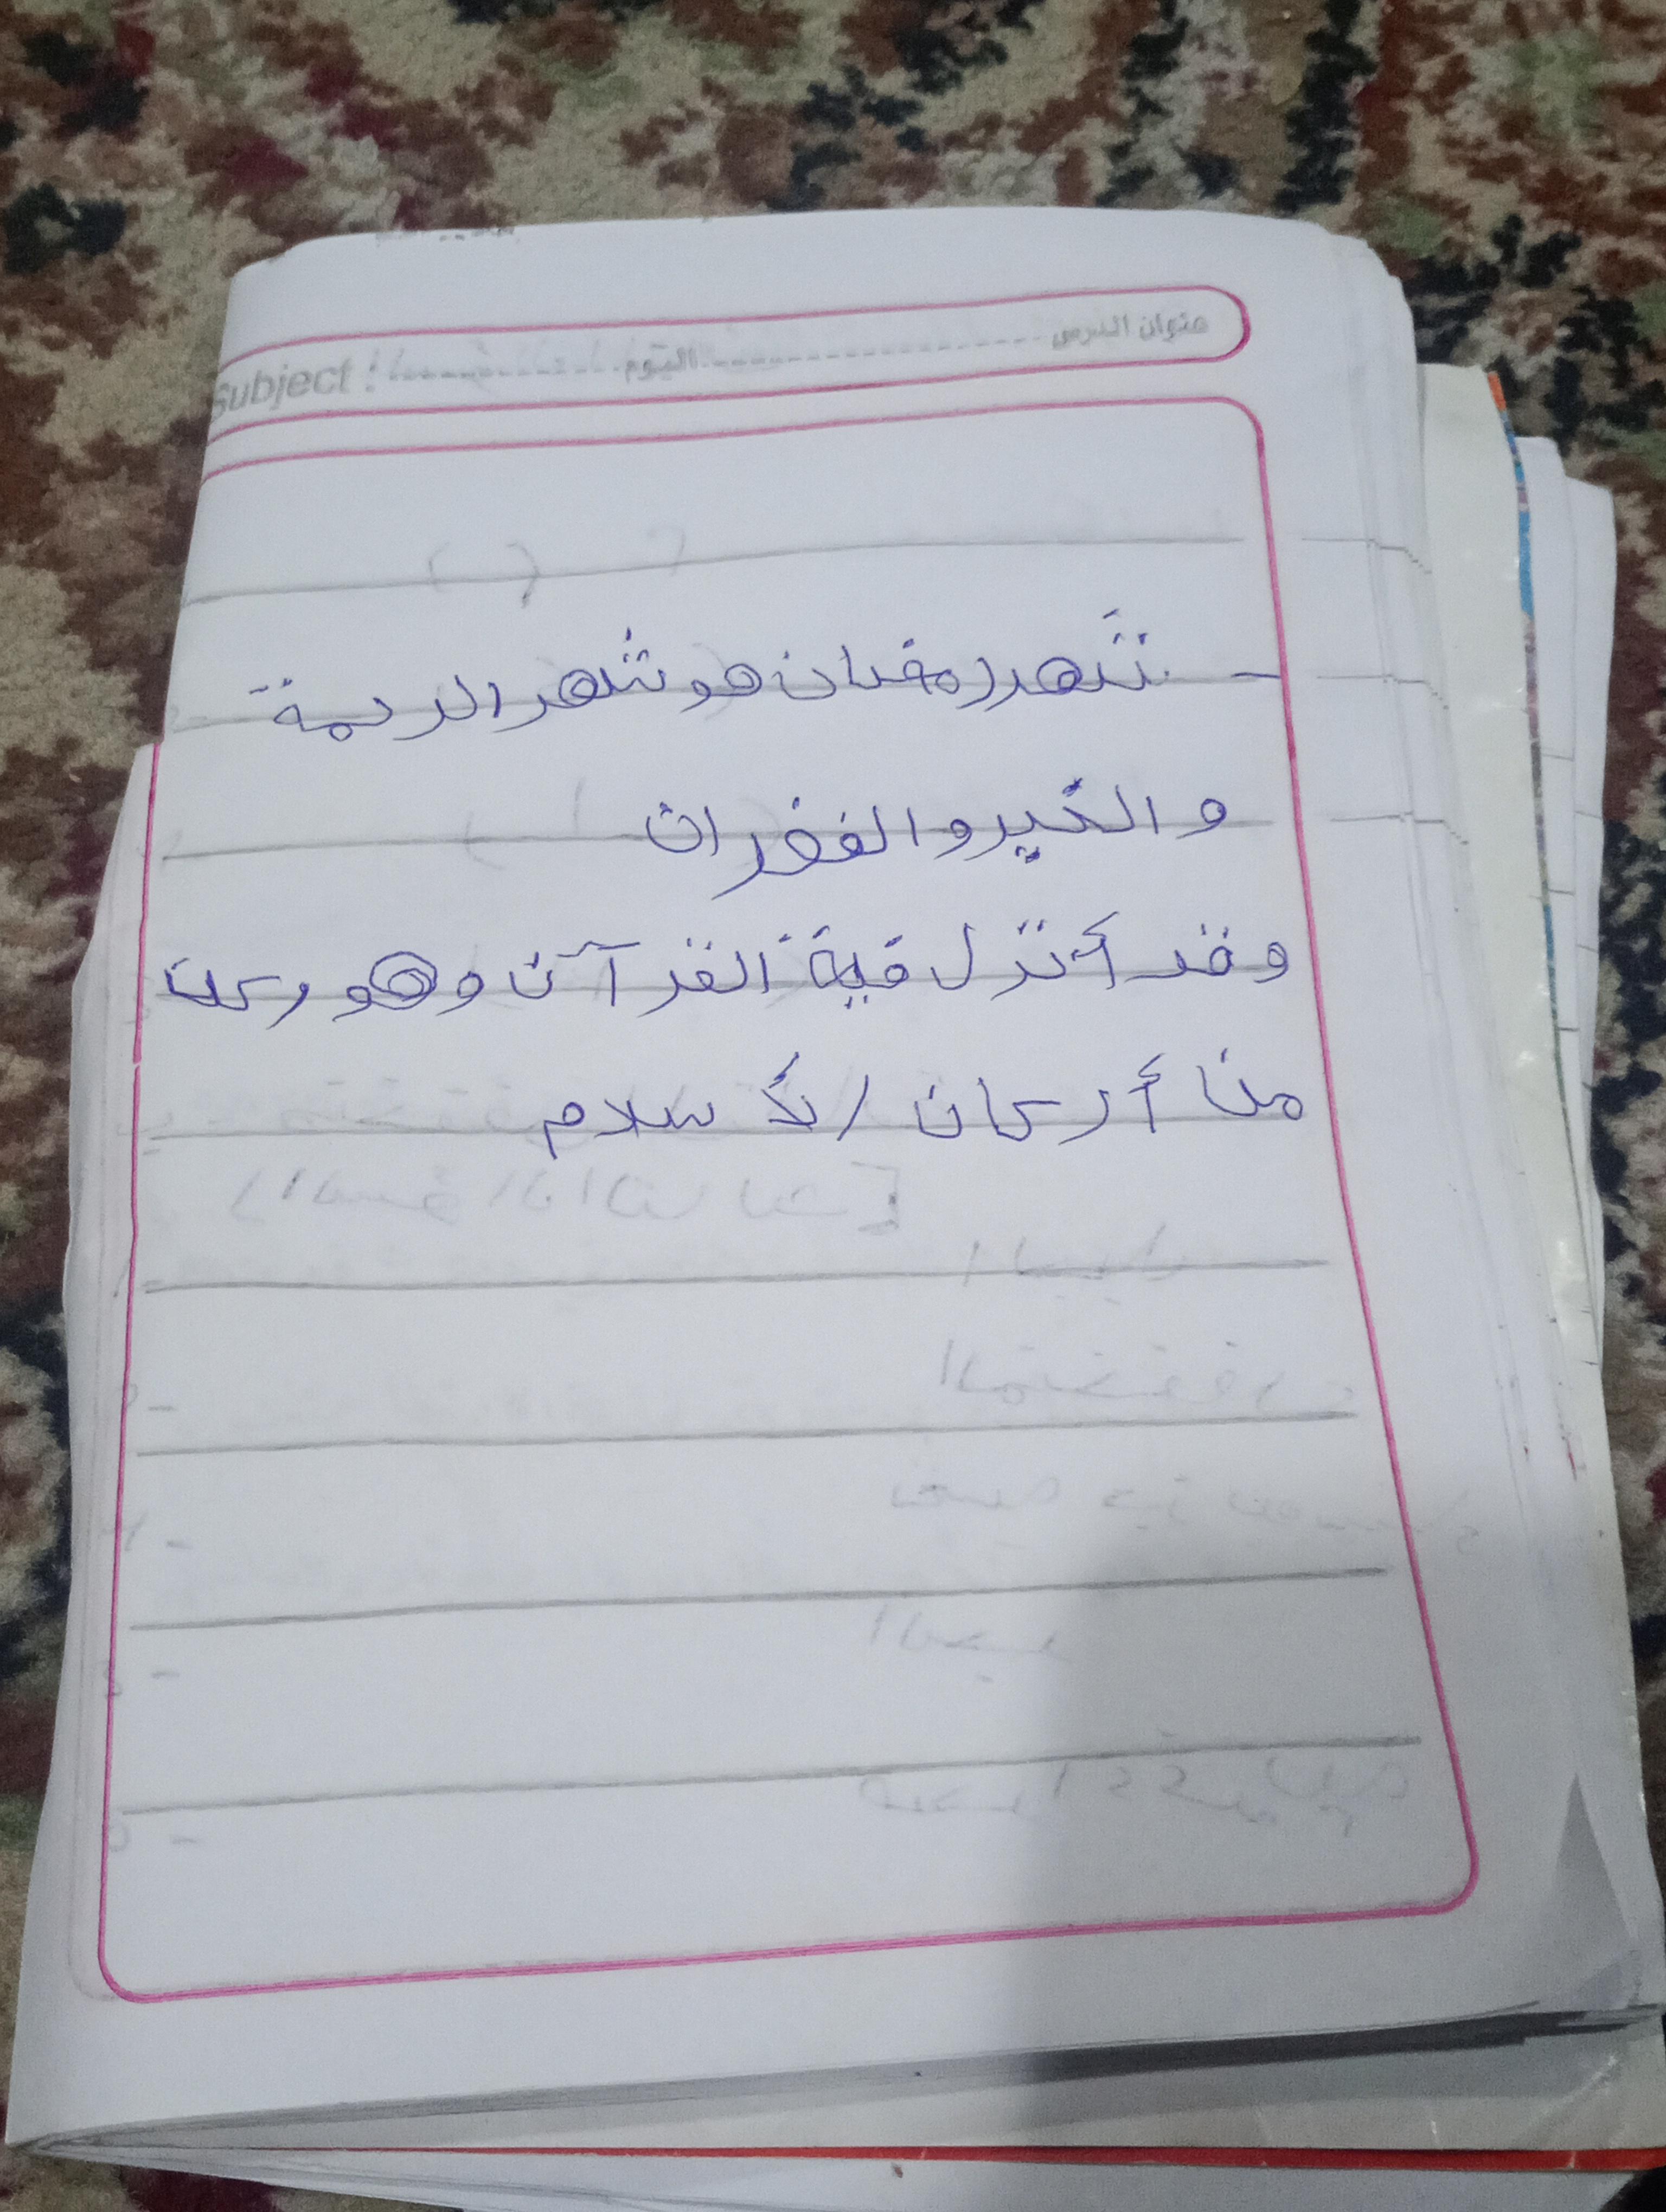 عنوان الدرس ..................... اليوم ............... Subject :
- شهر رمضان هو شهر الرحمة
والخير والغفران
وقد أنزل فية القرآن وهو ركن
من أركان الأسلام